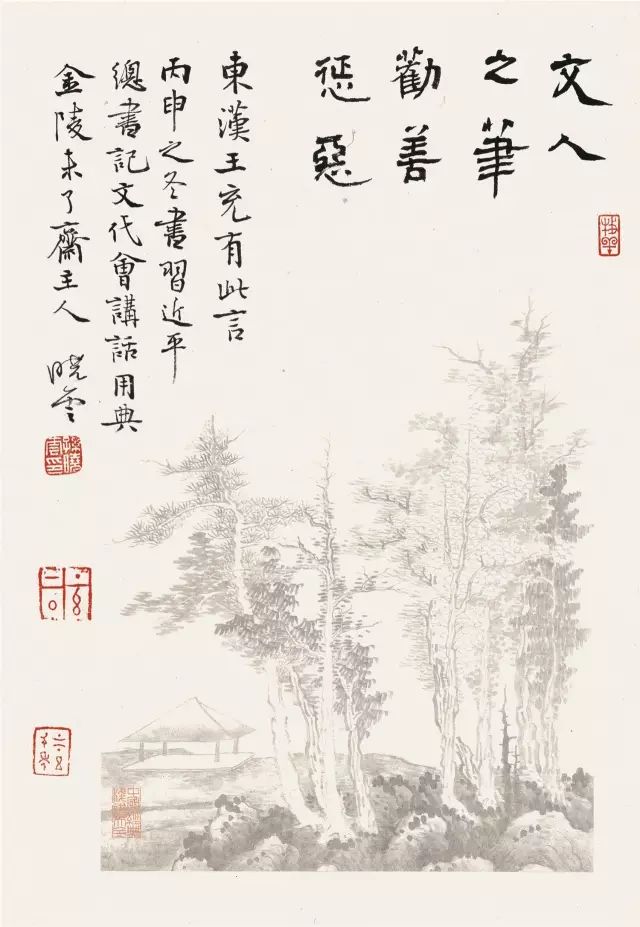 文人
之筆
勸善
惩惡
東漢王充有此言
丙申之冬書習近平
總書記文代會講話用典
金陵未了齋主人 曉雲